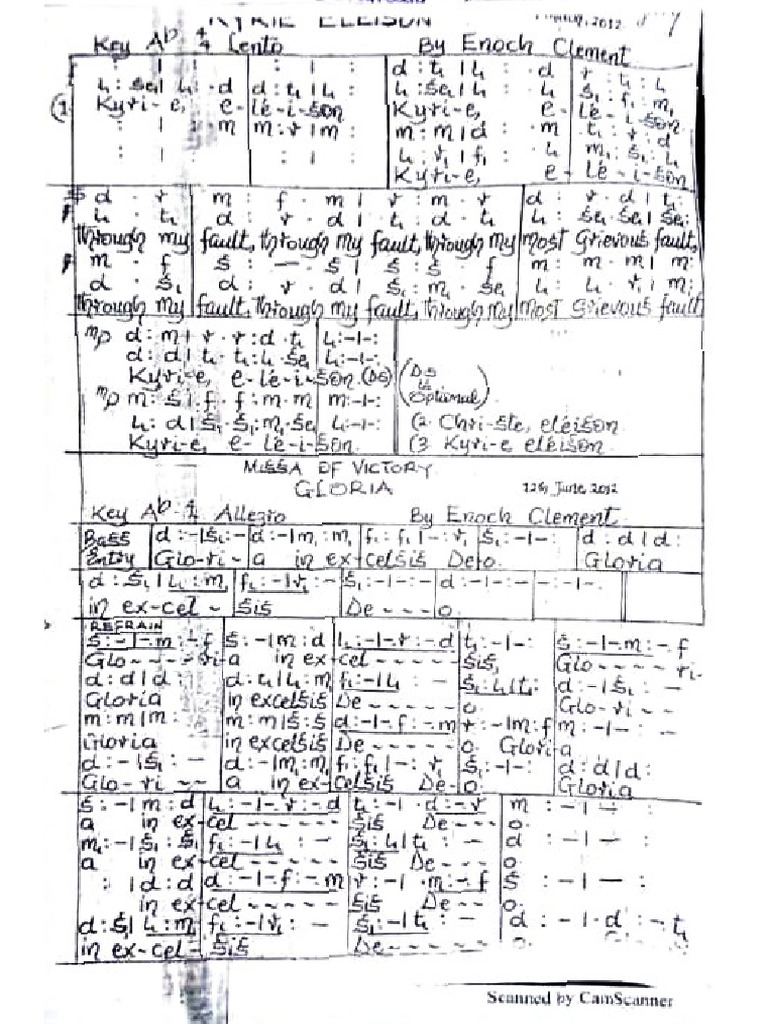 KYRIE ELEISON 2012
Key Ab 4/4 Lento By Enoch Clement
: | : : | : d : t₁ | l₁ : . d r : t₁ : l₁
l₁ : se₁ | l₁ : . d d : t₁ | l₁ : l₁ : se₁ | l₁ : . l₁ s₁ . f₁ . m₁
(1 Kyri-e, e-lé-i-son Kyri-e, e-lé-i-son
: | : . m m : r | m : m : m | d : . m t₁ : r : d
: | : : | : l₁ : r₁ | f₁ : . l₁ m₁ : s₁ : l₁
Kyri-e, e-lé-i-son
S d . r m : f . m | r : m . r d : r . d | t₁ :
l₁ . t₁ d : r . d | t₁ : d . t₁ l₁ : se₁ . se₁ | se₁ :
through my fault, through my fault, through my most Grievous fault,
m . f s : — . s | s : s . f m : m . m | m :
d . s₁ d : r . d | s₁ : m₁ . se₁ l₁ : l₁ . r₁ | m₁ :
through my fault, through my fault, through my most Grievous fault
mp d : m | r . r : d . t₁ l₁ : - | - :
d : d | t₁ . t₁ : l₁ . se₁ l₁ : - | - :
Kyri-e, e-lé-i-son. (DS) (DS is Optional)
mp m : s | f . f : m . m m : - | - :
l₁ : d | s₁ . s₁ : m₁ . se₁ l₁ : - | - : (2. Chri-ste, eléison
Kyri-e, e-lé-i-son. (3 Kyri-e eléison
MISSA OF VICTORY
GLORIA 12th June 2012
Key Ab 4/4 Allegro By Enoch Clement
Bass d : - | s₁ : - d : - | m₁ : m₁ f₁ : f₁ | - : r₁ s₁ : - | - : d : d | d :
Entry Glo-ri-a in ex-celsis Deo. Gloria
d : s₁ | l₁ : m₁ f₁ : - | r₁ : - s₁ : - | - : - d : - | - : - - : - | - :
in ex-cel-sis De---o.
REFRAIN
s : - | - . m : - . f s : - | m : d l₁ : - | - . r : - . d t₁ : - | - : s : - | - . m : - . f
Glo-----ri-a in ex-cel-----sis, Glo-----ri-
d : d | d : d : t₁ | l₁ : m₁ f₁ : - | l₁ : - s₁ : l₁ | t₁ : d : - | s₁ : -
Gloria in excelsis De-----o. Glo-ri--
m : m | m : m : m | s : s d : - | - . f : - . m r : - | m : f m : - | - :
Gloria in excelsis De-----o. Gloria
d : - | s₁ : - d : - | m₁ : m₁ f₁ : f₁ | - : r₁ s₁ : - | - : d : d | d :
Glo-ri--a in ex-celsis De-o. Gloria
s : - | m : d l₁ : - | - . r : - . d t₁ : - | . d : - . r m : - | - :
a in ex-cel-----sis De---o.
m₁ : - | s₁ : s₁ f₁ : - | l₁ : - s₁ : l₁ | t₁ : - d : - | - :
a in ex-cel-----sis De---o.
: | d : d d : - | - . f : - . m r : - | . m : - . f s : - | - :
in ex-cel-----sis De--o.
d : s₁ | l₁ : m₁ f₁ : - | r₁ : - s₁ : - | t₁ : - d : - | - . d : - . t₁
in ex-cel-sis De-----o.
Scanned by CamScanner